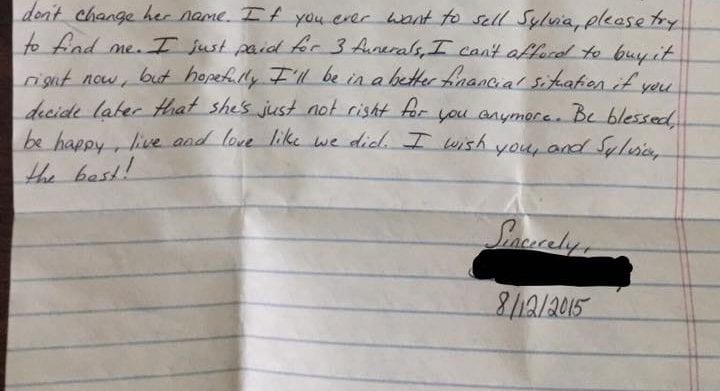 don't change her name. If you ever want to sell Sylvia, please try
to find me. I just paid for 3 funerals, I can't afford to buy it
right now, but hopefully I'll be in a better financial situation if you
decide later that she's just not right for you anymore. Be blessed,
be happy, live and love like we did. I wish you, and Sylvia,
the best!
Sincerely,
8/12/2015